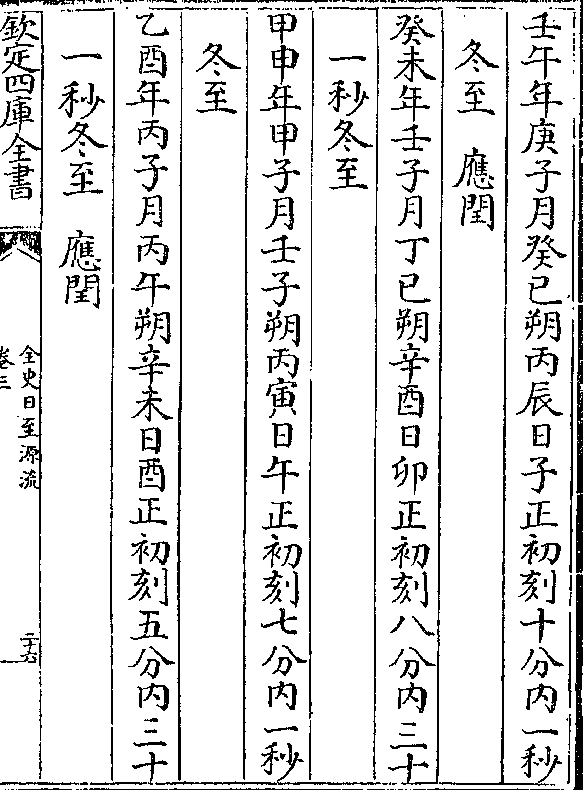 壬午年庚子月癸巳朔丙辰日子正初刻十分内一秒
冬至　應閏
癸未年壬子月丁巳朔辛酉日卯正初刻八分内三十
一秒冬至
甲申年甲子月壬子朔丙寅日午正初刻七分内一秒
冬至
乙酉年丙子月丙午朔辛未日酉正初刻五分内三十
一秒冬至　應閏
欽定四庫全書
全史日至源流
卷三
二十六